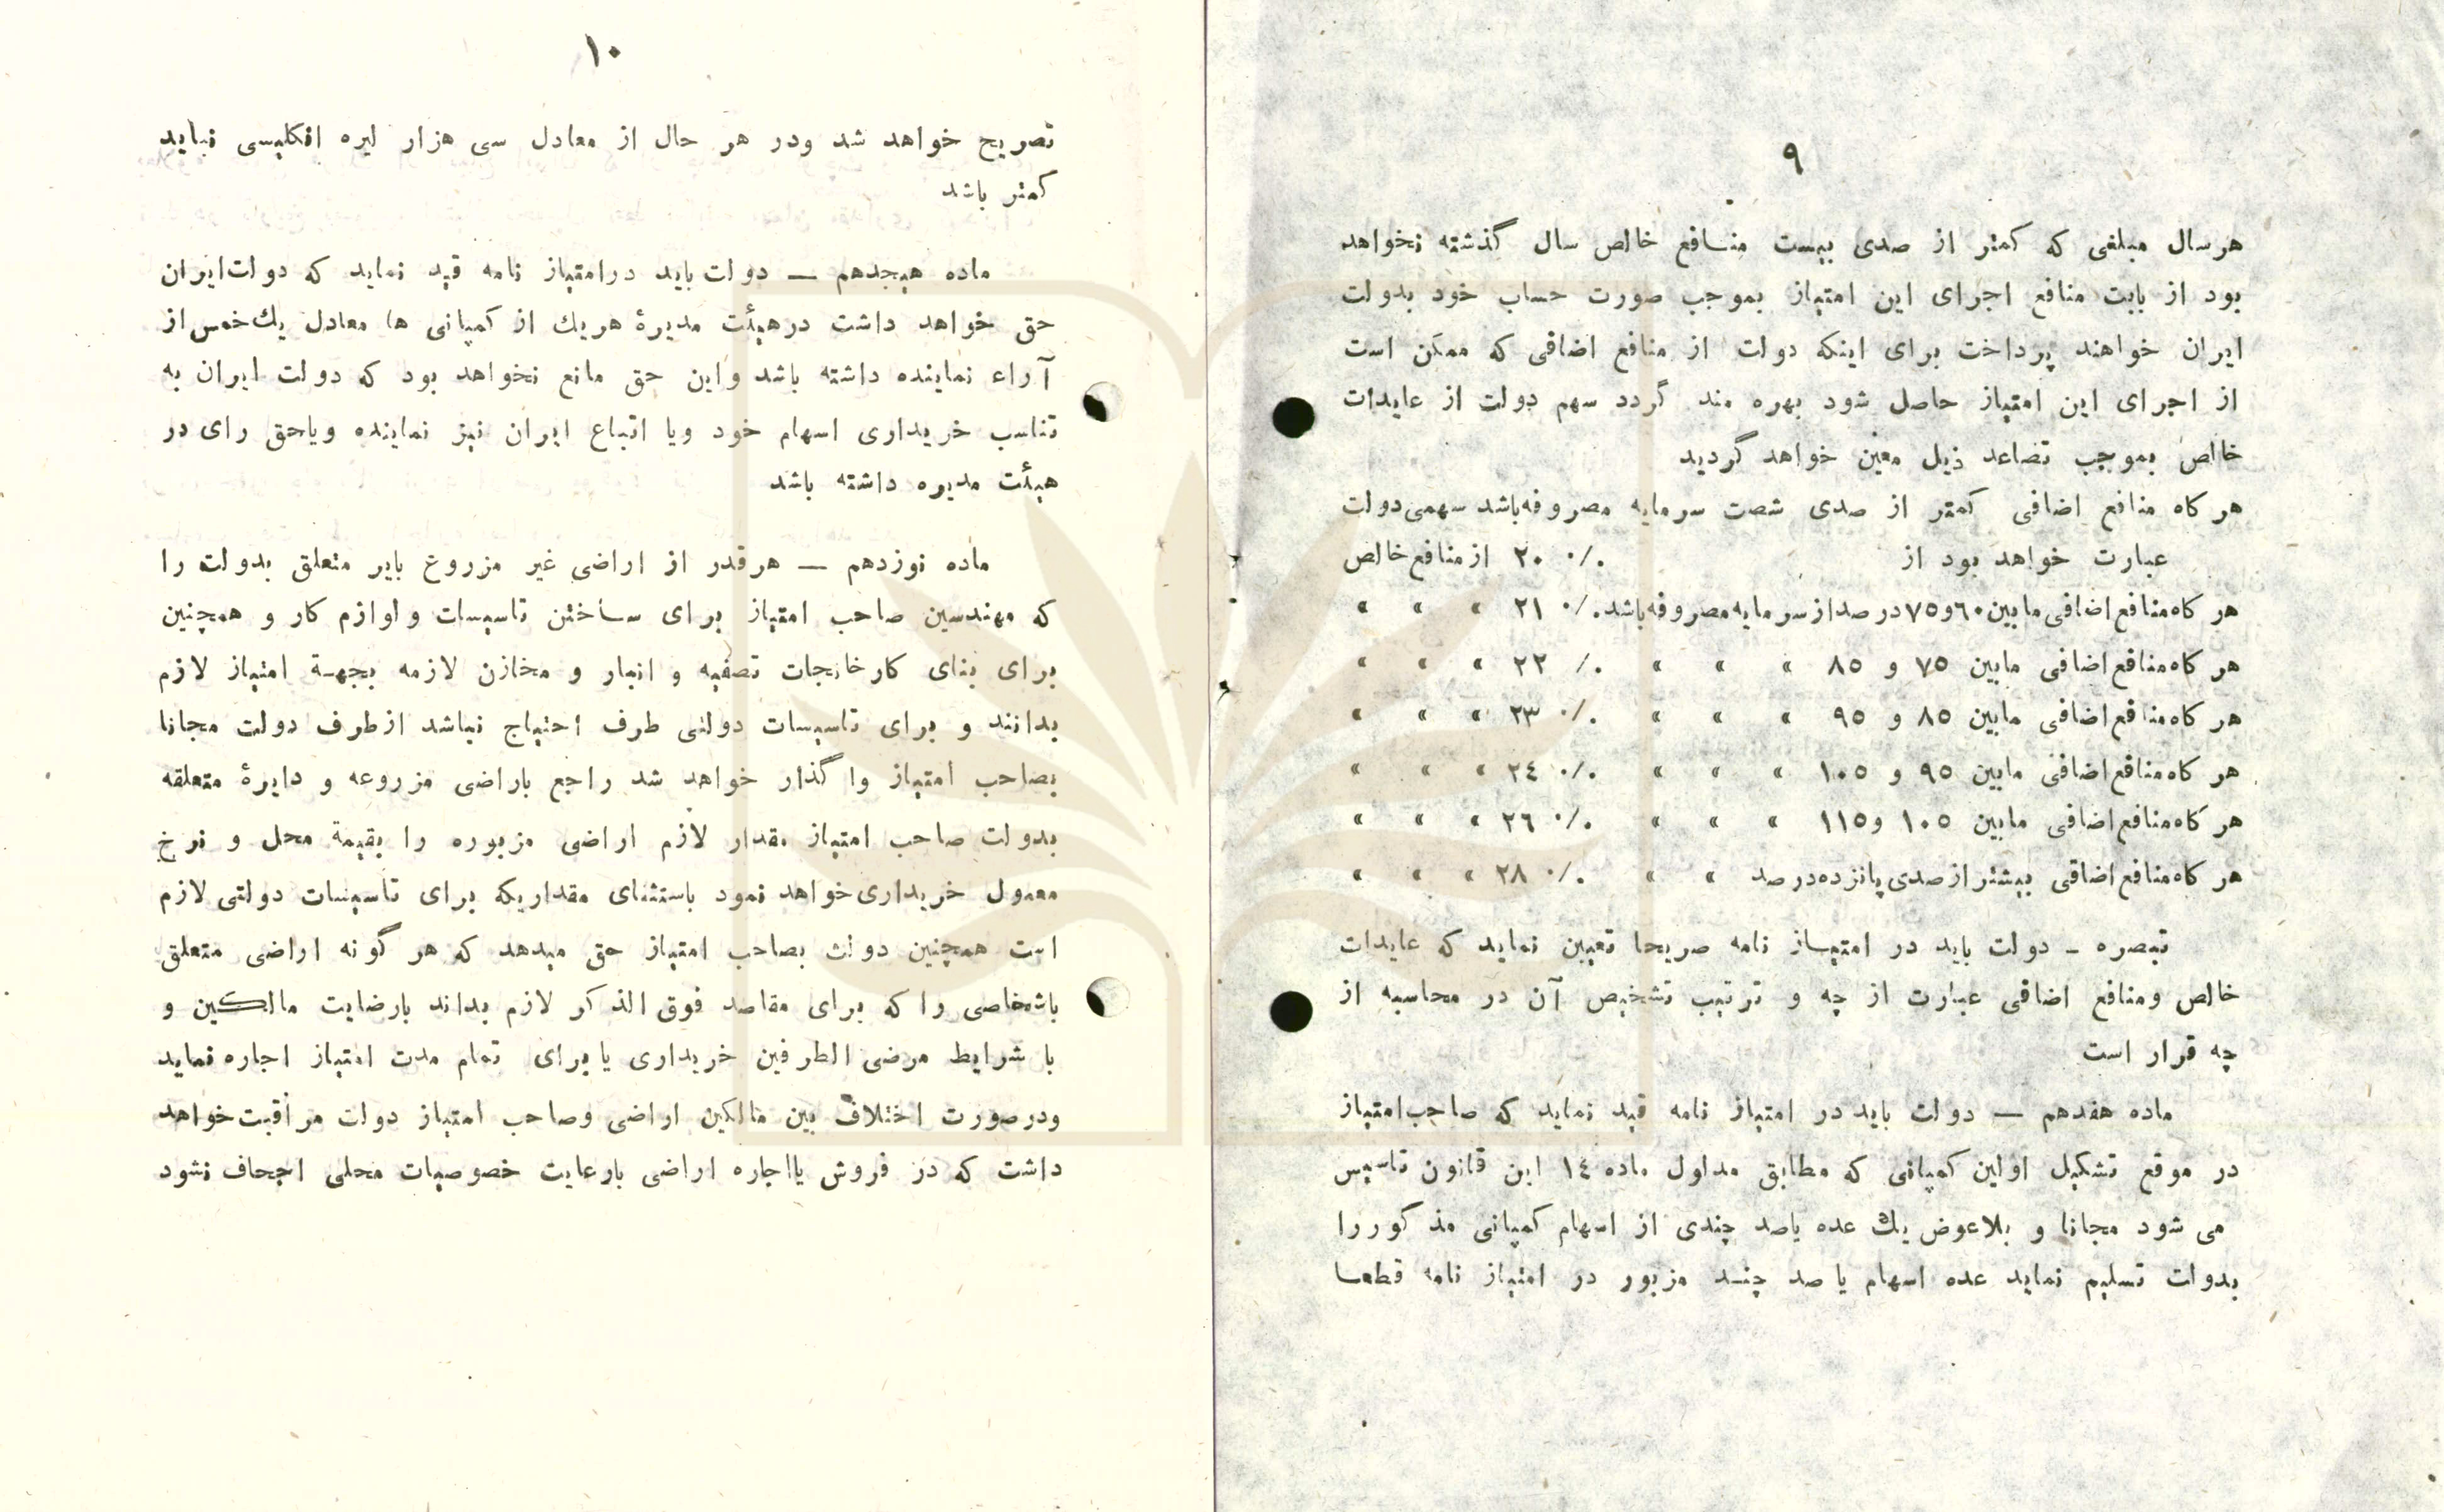 ۹
هرسال مبلغی که کمتر از صدی بیست منافع خالص سال گذشته نخواهد
بود از بابت منافع اجرای این امتیاز بموجب صورت حساب خود بدولت
ایران خواهند پرداخت برای اینکه دولت از منافع اضافی که ممکن است
از اجرای این امتیاز حاصل شود بهره مند گردد سهم دولت از عایدات
خالص بموجب تصاعد ذیل معین خواهد گردید
هر کاه منافع اضافی کمتر از صدی شصت سرمایه مصروفه باشد سهمی دولت
عبارت خواهد بود از ۲۰ ٪ از منافع خالص
هر کاه منافع اضافی مابین ٦۰ و ۷۵ در صد از سرمایه مصروفه باشد ۲۱ ٪ » » »
هر کاه منافع اضافی مابین ۷۵ و ۸۵ » » » ۲۲ ٪ » » »
هر کاه منافع اضافی مابین ۸۵ و ۹۵ » » » ۲۳ ٪ » » »
هر کاه منافع اضافی مابین ۹۵ و ۱۰۵ » » » ۲٤ ٪ » » »
هر کاه منافع اضافی مابین ۱۰۵ و ۱۱۵ » » » ۲٦ ٪ » » »
هر کاه منافع اضافی بیشتر از صدی پانزده در صد » » ۲۸ ٪ » » »
تبصره ـ دولت باید در امتیاز نامه صریحا تعیین نماید که عایدات
خالص ومنافع اضافی عبارت از چه و ترتیب تشخیص آن در محاسبه از
چه قرار است
ماده هفدهم — دولت باید در امتیاز نامه قید نماید که صاحب امتیاز
در موقع تشکیل اولین کمپانی که مطابق مدلول ماده ۱٤ این قانون تاسیس
می شود مجانا و بلاعوض یك عده یاصد چندی از اسهام کمپانی مذکور را
بدولت تسلیم نماید عده اسهام یا صد چند مزبور در امتیاز نامه قطعا
۱۰
تصریح خواهد شد ودر هر حال از معادل سی هزار لیره انکلیسی نباید
کمتر باشد
ماده هیجدهم — دولت باید درامتیاز نامه قید نماید که دولت ایران
حق خواهد داشت درهیئت مدیرۀ هریك از کمپانی ها معادل یك خمس از
آراء نماینده داشته باشد واین حق مانع نخواهد بود که دولت ایران به
تناسب خریداری اسهام خود ویا اتباع ایران نیز نماینده ویاحق رای در
هیئت مدیره داشته باشد
ماده نوزدهم — هرقدر از اراضی غیر مزروع بایر متعلق بدولت را
که مهندسین صاحب امتیاز برای ساختن تاسیسات و لوازم کار و همچنین
برای بنای کارخانجات تصفیه و انبار و مخازن لازمه بجهة امتیاز لازم
بدانند و برای تاسیسات دولتی طرف احتیاج نباشد از طرف دولت مجانا
بصاحب امتیاز وا گذار خواهد شد راجع باراضی مزروعه و دایرۀ متعلقه
بدولت صاحب امتیاز مقدار لازم اراضی مزبوره را بقیمة محل و نرخ
معمول خریداری خواهد نمود باستثنای مقداریکه برای تاسیسات دولتی لازم
است همچنین دولت بصاحب امتیاز حق میدهد که هر گونه اراضی متعلق
باشخاصی را که برای مقاصد فوق الذکر لازم بداند بارضایت مالکین و
با شرایط مرضی الطرفین خریداری یا برای تمام مدت امتیاز اجاره نماید
ودرصورت اختلاف بین مالکین اراضی وصاحب امتیاز دولت مراقبت خواهد
داشت که در فروش یااجاره اراضی بارعایت خصوصیات محلی اجحاف نشود